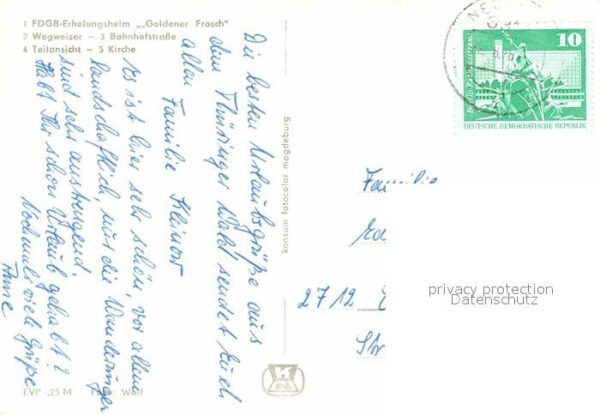 1 FDGB-Erholungsheim „„Goldener Frosch"
2 Wegweiser — 3 Bahnhofstraße
4 Teilansicht — 5 Kirche
Die besten Urlaubsgrüße aus
dem Thüringer Wald sendet Euch
allen Familie
Es ist hier sehr schön, vor allem
landschaftlich, nur die Wanderungen
sind sehr anstrengend.
Habt Ihr schon Urlaub gehabt?
Nochmals viele Grüße
EVP -,25 M
konsum fotocolor magdeburg
10
DEUTSCHE DEMOKRATISCHE REPUBLIK
Familie
2712
privacy protection
Datenschutz